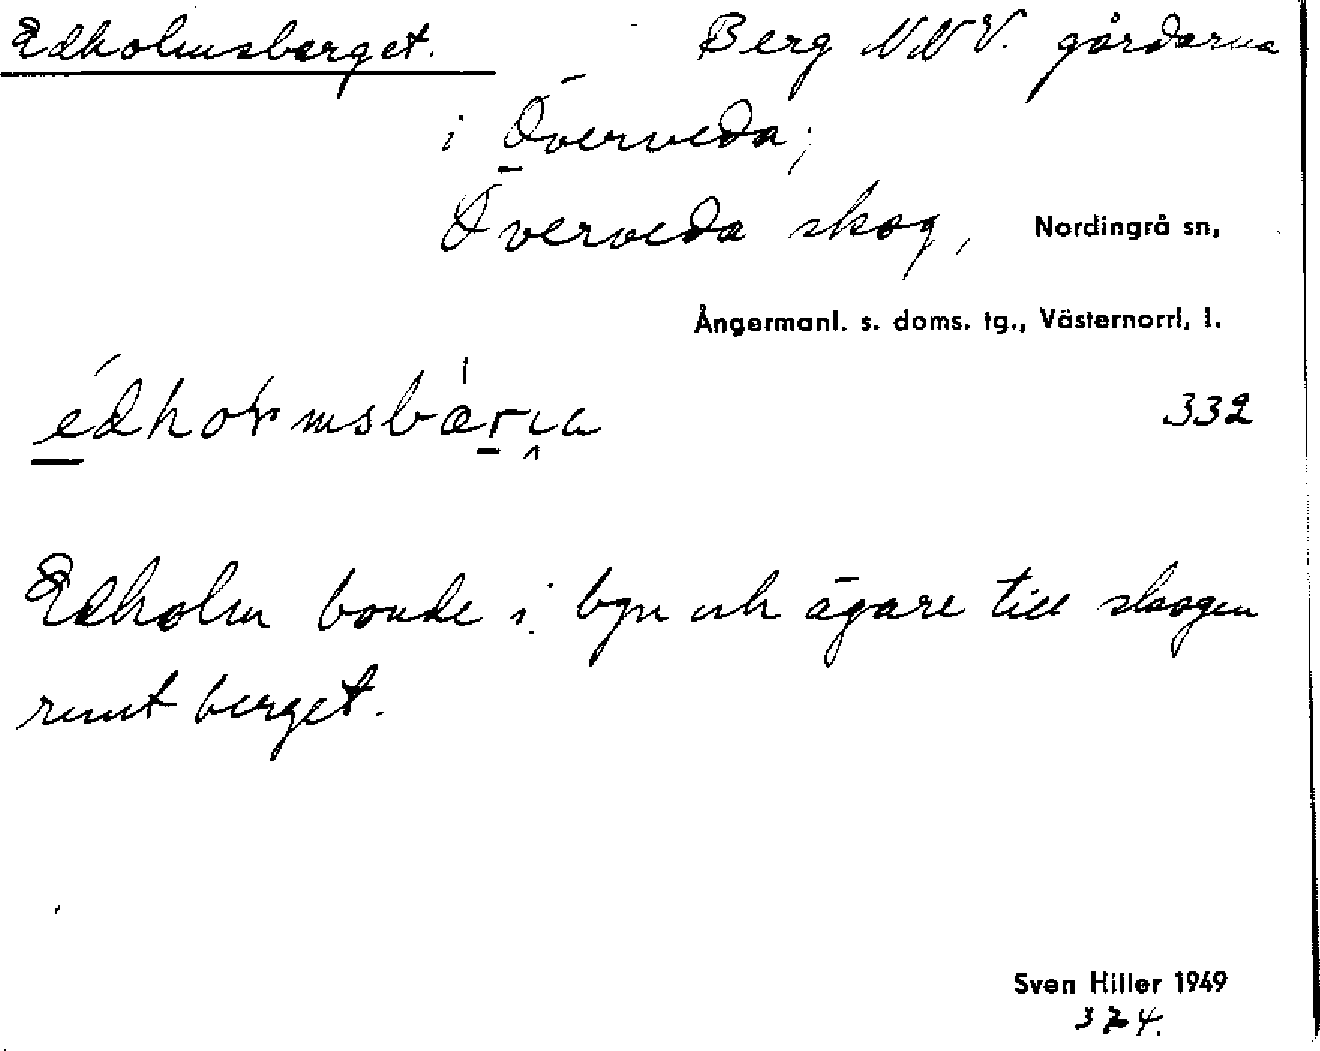 Edholmsberget. Berg NNV. gårdarna
i Överveda;
Överveda skog, Nordingrå sn,
Ångermanl. s. doms. tg., Västernorrl. l.
332
Edholm bonde i byn och ägare till skogen
runt berget.
Sven Hiller 1949
324.